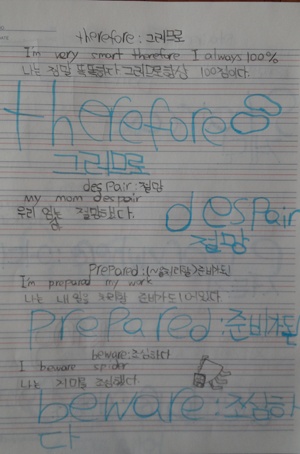 therefore : 그러므로
I'm very smart therefore I always 100%
나는 정말 똑똑하다 그러므로 항상 100점이다.
therefore
그러므로
despair : 절망
my mom despair
우리 엄마는 절망했다.
despair
절망
Prepared : 준비가 된
I'm prepared my work
나는 내 일을 준비가 되어있다
Prepared : 준비가 된
beware : 조심하다
I beware spider
나는 거미를 조심했다.
beware : 조심하
다